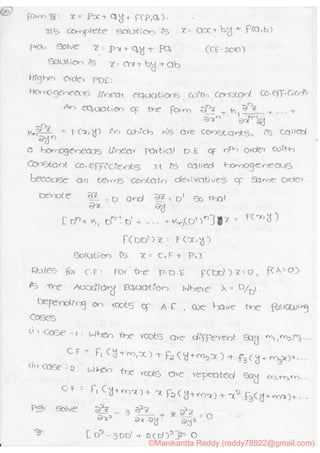 form IV: z = px + qy + f(p,q).
It's complete solution is z = ax + by + f(a,b)
pbb: solve z = px + qy + pq (CE-2010)
Solution is z = ax + by + ab
Higher order PDE:
Homogeneous linear equations with constant co.efficients
An equation of the form ∂ⁿz/∂xⁿ + k₁ ∂ⁿz/∂xⁿ⁻¹∂y + ... +
kₙ ∂ⁿz/∂yⁿ = F(x,y) in which k's are constants, is called
a homogeneous linear partial D.E of nth order with
constant co.efficients. It is called homogeneous
because all terms contain derivatives of same order.
Denote ∂z/∂x = D and ∂z/∂y = D' so that
[Dⁿ + k₁ Dⁿ⁻¹ D' + ... + kₙ(D')ⁿ] z = F(x,y)
f(DD')z = F(x,y)
Solution is z = C.F + P.I
Rules for C.F: For the P.D.E f(DD')z=0, f(λ=0)
is the Auxiliary equation. where λ = D/D'.
Depending on roots of A.E, we have the following
cases
(i) case-1: when the roots are different say m₁,m₂,m₃...
C.F = f₁(y+m₁x) + f₂(y+m₂x) + f₃(y+m₃x)+...
(ii) case-2: when the roots are repeated say m.m.m...
C.F = f₁(y+mx) + x f₂(y+mx) + x² f₃(y+mx)+...
pbb: solve ∂²z/∂x² - 3 ∂²z/∂x∂y + 2 ∂²z/∂y² = 0
[D² - 3DD' + 2(D')²]z = 0
©Manikantta Reddy (reddy78922@gmail.com)